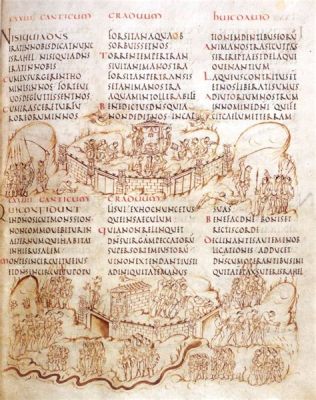 CXXIII CANTICUM
NISIQUIADNS
ERATINNOBISDICATNUNC
ISRAHEL NISIQUIADNS
ERATINNOBIS
CUMEXSURGERENTHO
MINESINNOS FORSITAN
UIUOSDEGLUTISSENTNOS
CUMIRASCERETURFU
ROREORUMINNOS
GRADUUM
FORSITANAQUAOB
SORBUISSETNOS
TORRENTEMPERTRAN
SIUITANIMANOSTRA
FORSITANPERTRANSIS
SETANIMANOSTRA
AQUAMINTOLLERABILE
BENEDICTUSDNSQUIA
NONDEDITNOS INCAP
TIONEMDENTIBUSEORU
ANIMANOSTRASICUTPAS
SERERIPTAESTDELAQUE
OUENANTIUM
LAQUEUSCONTRITUSE
ETNOSLIBERATISUMUS
ADIUTORIUMNOSTRUM
INNOMINEDNI QUIFE
CITCAELUMETTERRAM
CXXIIII CANTICUM
QUICONFIDUNT
INDNOSICUTMONSSION
NONCOMMOUEBITURIN
AETERNUMQUIHABITAT
INHIERUSALEM
MONTESINCIRCUITUEIUS
ETDNSINCIRCUITUPOPU
GRADUUM
LISUI EXHOCNUNCETUS
QUEINSAECULUM
QUIANONRELINQUET
DNSUIRGAMPECCATORU
SUPERSORTEMIUSTORU
UTNONEXTENDANTIUSTI
ADINIQUITATEMMANUS
SUAS
BENEFACDNE BONISET
RECTISCORDE
DECLINANTESAUTEMINOB
LIGATIONES ADDUCET
DNSCUMOPERANTIBUSINI
QUITATEMPAXSUPERISRAHEL